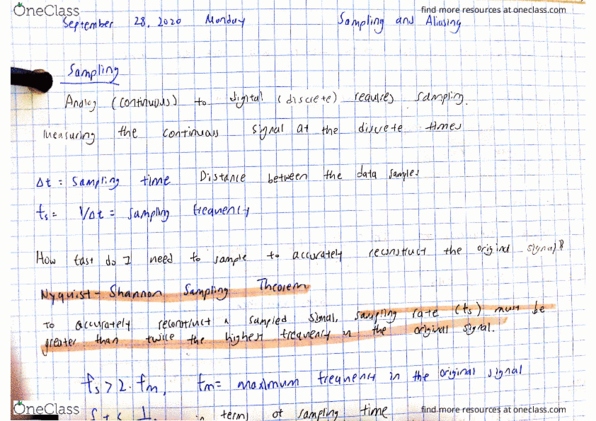 OneClass
find more resources at oneclass.com
September 28, 2020 Monday Sampling and Aliasing
Sampling
Analog (continuous) to digital (discrete) requires sampling.
measuring the continuous signal at the discrete times
Δt = sampling time Distance between the data samples
fs = 1/Δt = sampling frequency
How fast do I need to sample to accurately reconstruct the original signal?
Nyquist - Shannon Sampling Theorem
To accurately reconstruct a sampled signal, sampling rate (fs) must be
greater than twice the highest frequency in the original signal.
fs > 2·fm, fm = maximum frequency in the original signal
in terms of sampling time
OneClass
find more resources at oneclass.com